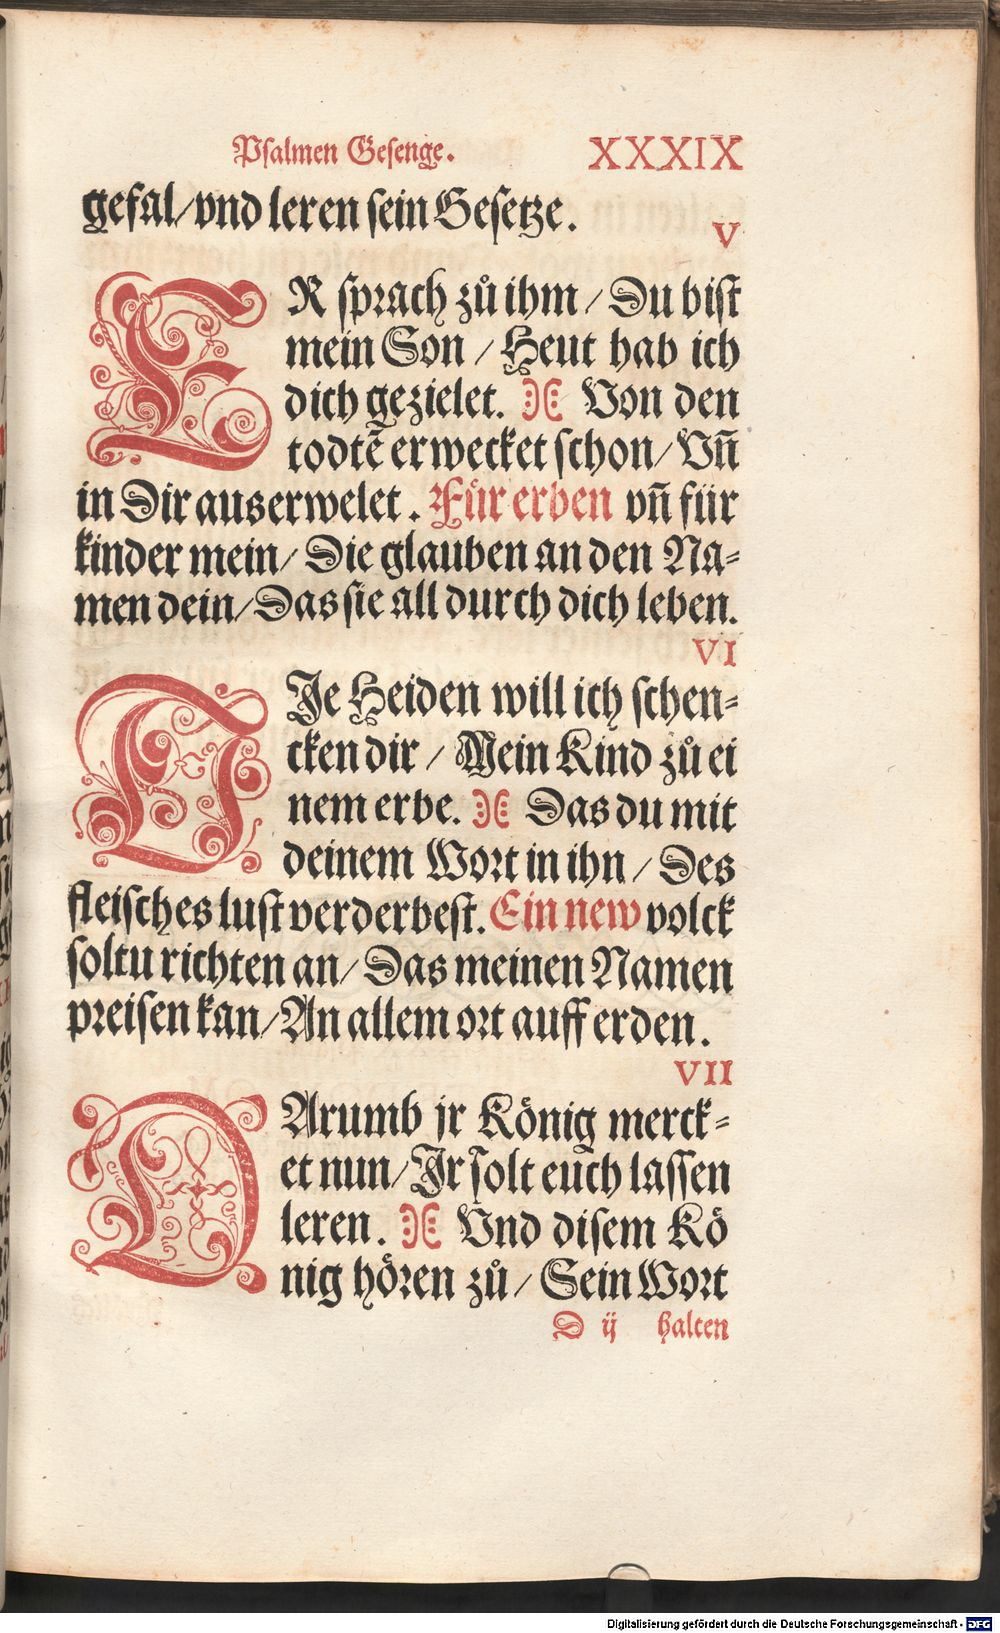 Psalmen Gesenge. XXXIX
gefal/vnd leren sein Gesetze.
V
ER sprach zů ihm / Du bist
mein Son / Heut hab ich
dich gezielet. Von den
todtē erwecket schon/ Vñ
in Dir auserwelet. Fůr erben vñ für
kinder mein/ Die glauben an den Na-
men dein/Das sie all durch dich leben.
VI
DJe Heiden will ich schen-
cken dir / Mein Kind zů ei
nem erbe. Das du mit
deinem Wort in ihn / Des
fleisches lust verderbest. Ein new volck
soltu richten an/ Das meinen Namen
preisen kan/An allem ort auff erden.
VII
DArumb jr König merck-
et nun/Jr solt euch lassen
leren. Vnd disem Kö
nig hören zů/ Sein Wort
D ij halten
Digitalisierung gefördert durch die Deutsche Forschungsgemeinschaft - DFG